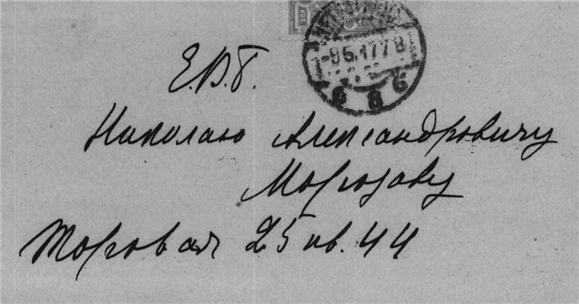 8 5 17 7 8
6 8 6
Е.В.Б.
Николаю Александровичу
Морозову
Торговая 25 кв. 44